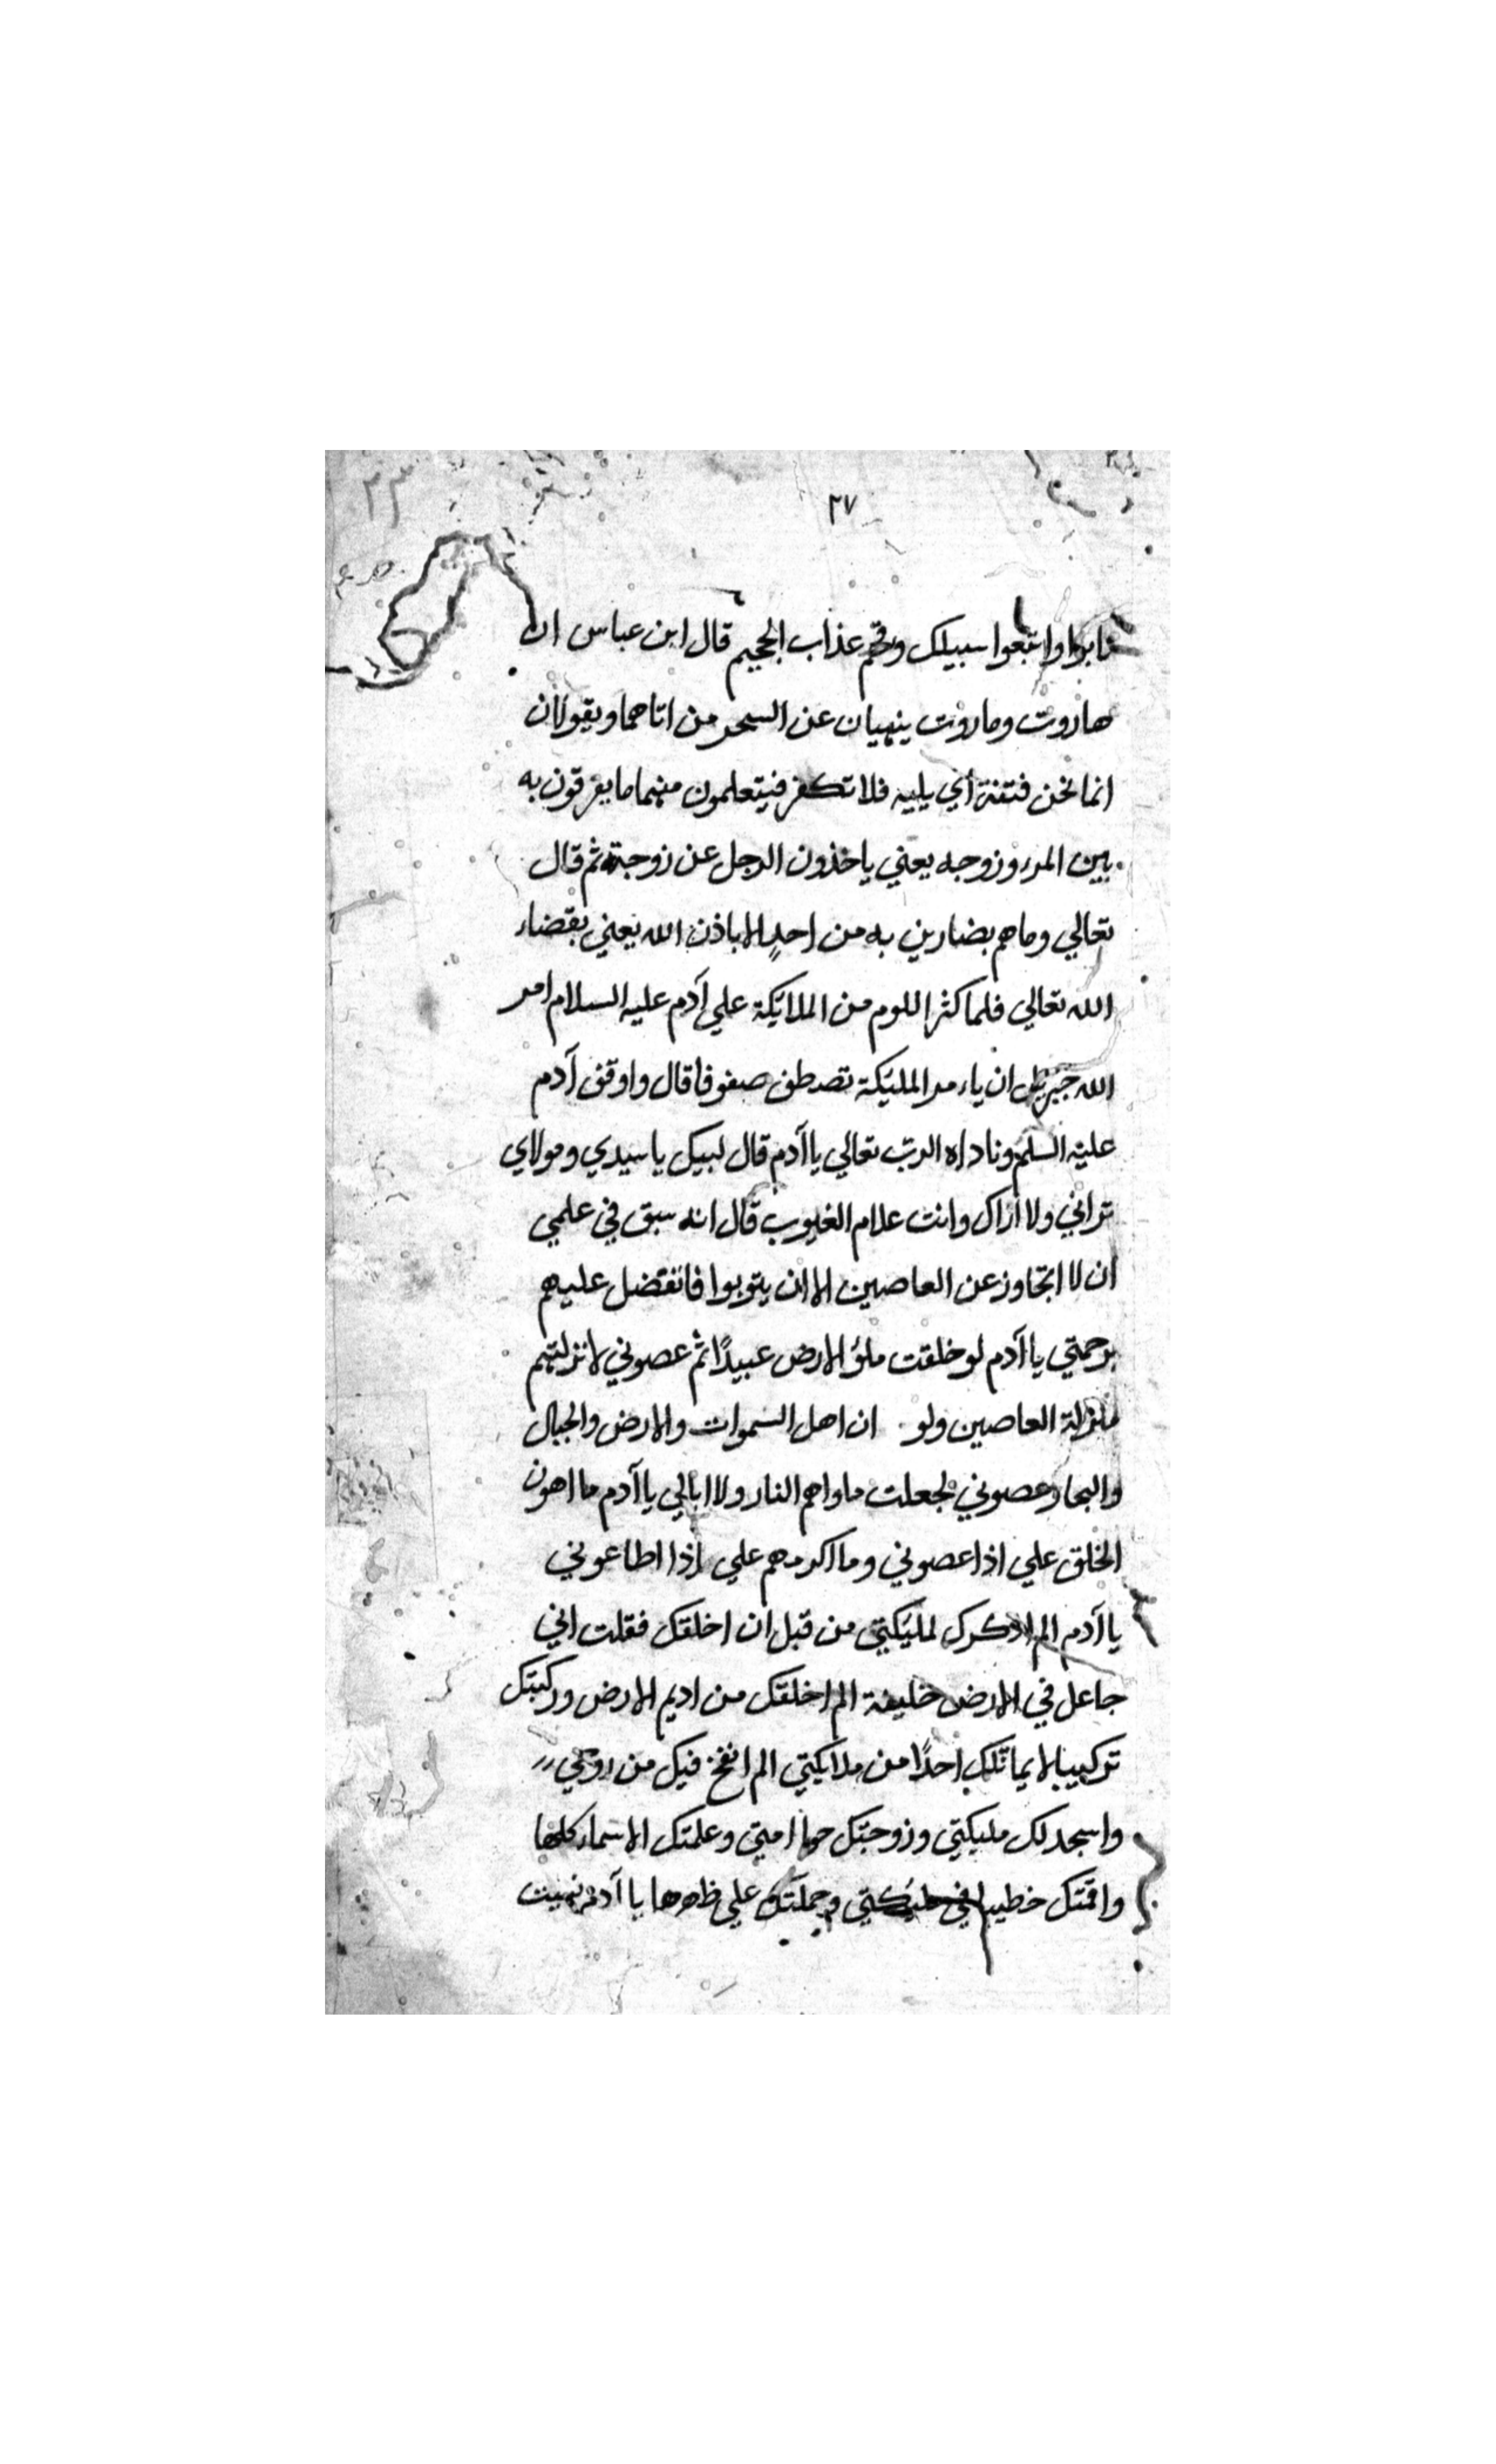 ٢٧
تابوا واتبعوا سبيلك وقهم عذاب الجحيم قال ابن عباس ان
هاروت وماروت ينهيان عن السحر من اتاهما ويقولان
انما نحن فتنة اي بليه فلا تكفر فيتعلمون منهما ما يفرقون به
بين المرء وزوجه يعني ياخذون الرجل عن زوجته ثم قال
تعالي وما هم بضارين به من احدٍ الا باذن الله يعني بقضاء
الله تعالي فلما كثر اللوم من الملايكة علي آدم عليه السلام امر
الله جبريل ان ياءمر المليكة تصطف صفوفا قال واوقف آدم
عليه السلم وناداه الربّ تعالي يا آدم قال لبيك يا سيدي ومولاي
تراني ولا اراك وانت علام الغيوب قال انه سبق في علمي
ان لا اتجاوز عن العاصين الا ان يتوبوا فاتفضل عليهم
برحمتي يا آدم لو خلقت ملؤ الارض عبيدًا ثم عصوني لانزلتهم
منزلة العاصين ولو ان اهل السموات والارض والجبال
والبحار عصوني لجعلت ماواهم النار ولا ابالي يا آدم ما اهون
الخلق علي اذا عصوني وما اكرمهم علي اذا اطاعوني
يا آدم الم اذكرك لمليكتي من قبل ان اخلقك فقلت اني
جاعل في الارض خليفة الم اخلقك من اديم الارض وركبتك
تركيبا لا يماثلك احدًا من ملايكتي الم انفخ فيك من روحي
واسجد لك مليكتي وزوجتك حوا امتي وعلمتك الاسماء كلها
واقمتك خطيبا في مليكتي وحملتك علي ظهرها يا آدم نهيت